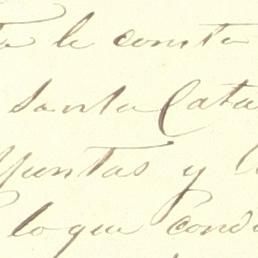 ta le consta
Santa Cata
Juntas y l
lo que cond